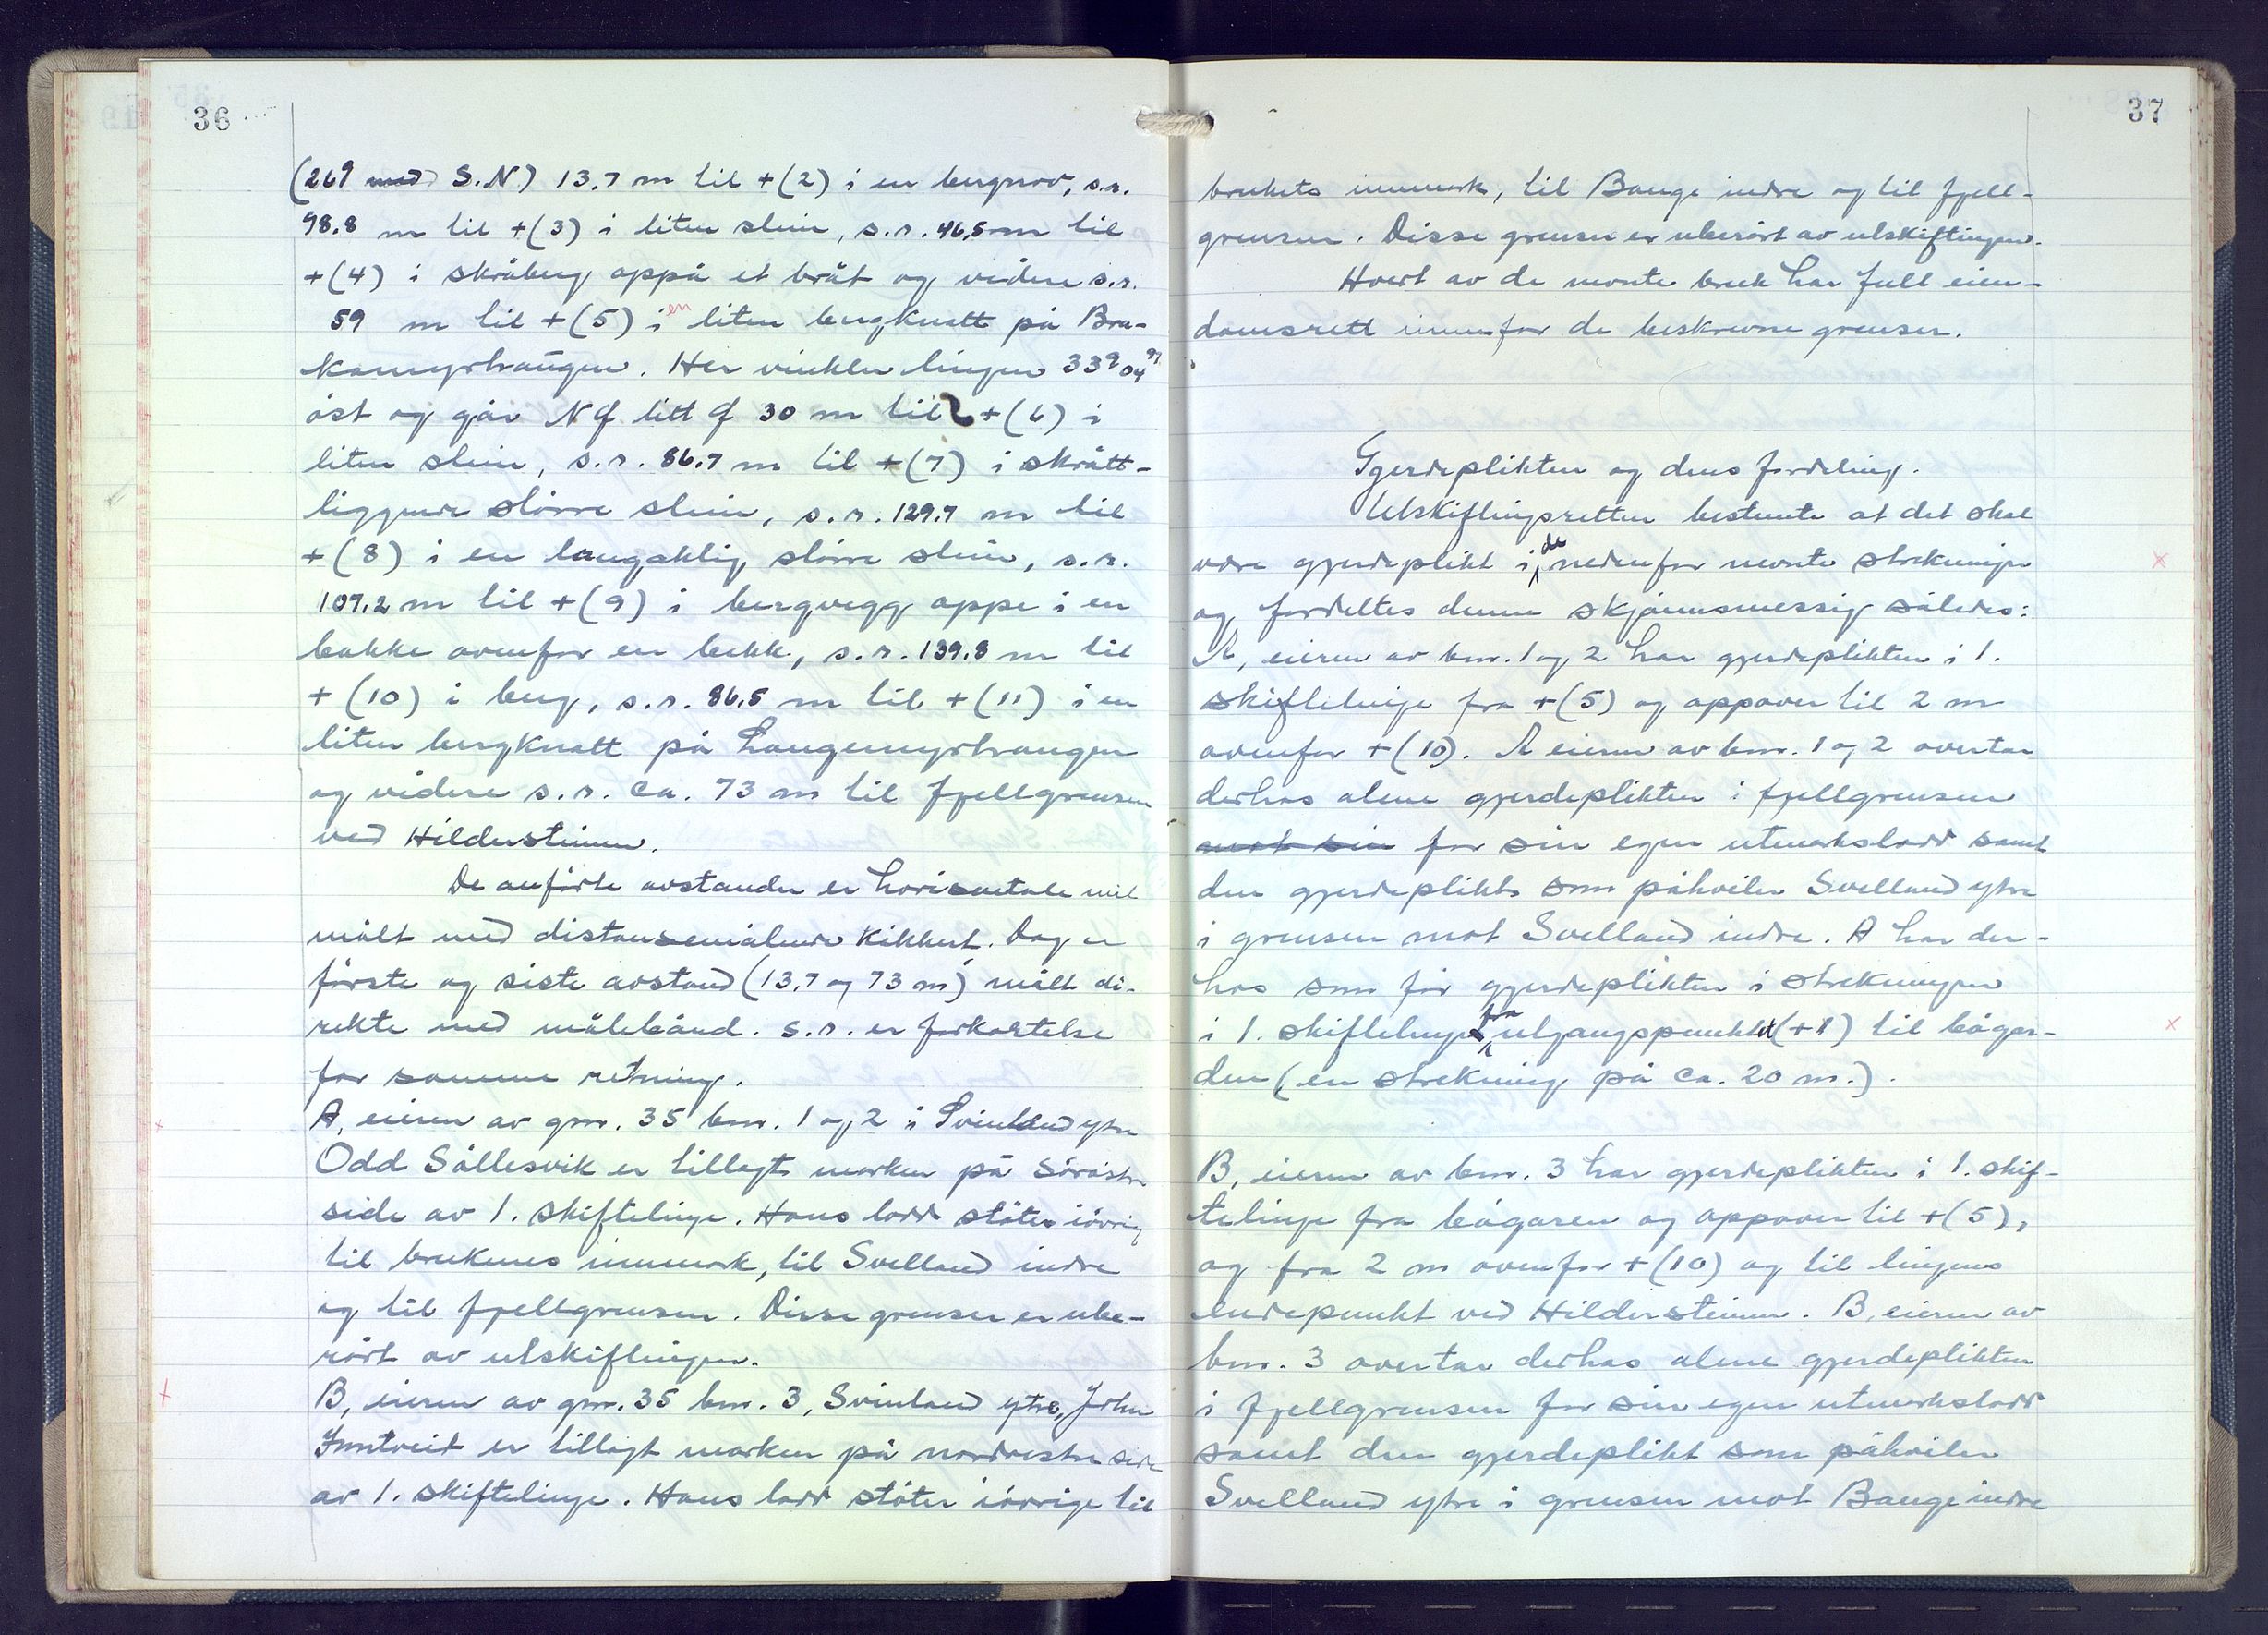 36
(269 med S.N.) 13.7 m til +(2) i en bergnov, s.r.
98.8 m til +(3) i liten stein, s.r. 46,5 m til
+(4) i skråberg oppå et bråt og videre s.r.
59 m til +(5) i en liten bergknatt på Bra-
kamyrhaugen. Her vinkler linjen 33g 04
øst og går NØ litt Ø 30 m til +(6) i
liten stein, s.r. 86.7 m til +(7) i skrått-
liggende større stein, s.r. 129.7 m til
+(8) i en langaktig større stein, s.r.
107.2 m til +(9) i bergvegg oppe i en
bakke ovenfor en bekk, s.r. 139.8 m til
+(10) i berg, s.r. 86,5 m til +(11) i en
liten bergknatt på Langemyrhaugen
og videre s.r. ca. 73 m til fjellgrensen
ved Hildersteinen.
De anførte avstander er horisontale
målt med distansemålende kikkert. Dog er
første og siste avstand (13,7 og 73 m) målt di-
rekte med målebånd. s.r. er forkortelse
for samme retning.
A, eieren av gnr. 35 bnr. 1 og 2 i Svinland ytre
Odd Sållesvik er tillagt marken på sørøstre
side av 1. skiftelinje. Hans lodd støter iøvrig
til brukenes innmark, til Svelland indre
og til fjellgrensen. Disse grenser er ube-
rørt av utskiftingen.
B, eieren av gnr. 35 bnr. 3, Svinland ytre, John
Inntveit er tillagt marken på nordvestre side
av 1. skiftelinje. Hans lodd støter iøvrige til
37
brukets innmark, til Bauge indre og til fjell-
grensen. Disse grenser er uberørt av utskiftingen.
Hvert av de nevnte bruk har full eien-
domsrett innenfor de beskrevne grenser.
Gjerdeplikten og dens fordeling.
Utskiftingsretten bestemte at det skal
være gjerdeplikt i de nedenfor nevnte strekninger
og fordeltes denne skjønnsmessig således:
A, eieren av bnr. 1 og 2 har gjerdeplikten i 1.
skiftelinje fra +(5) og oppover til 2 m
ovenfor +(10). A eieren av bnr. 1 og 2 overtar
derhos alene gjerdeplikten i fjellgrensen
mot sin for sin egen utmarkslodd samt
den gjerdeplikt som påhviler Svelland ytre
i grensen mot Svelland indre. A har der-
hos som før gjerdeplikten i strekningen
i 1. skiftelinje fra utgangspunktet (+1) til bøgar-
den (en strekning på ca. 20 m.).
B, eieren av bnr. 3 har gjerdeplikten i 1. skif-
telinje fra bøgaren og oppover til +(5),
og fra 2 m ovenfor +(10) og til linjens
endepunkt ved Hildersteinen. B, eieren av
bnr. 3 overtar derhos alene gjerdeplikten
i fjellgrensen for sin egen utmarkslodd
samt den gjerdeplikt som påhviler
Svelland ytre i grensen mot Bauge indre